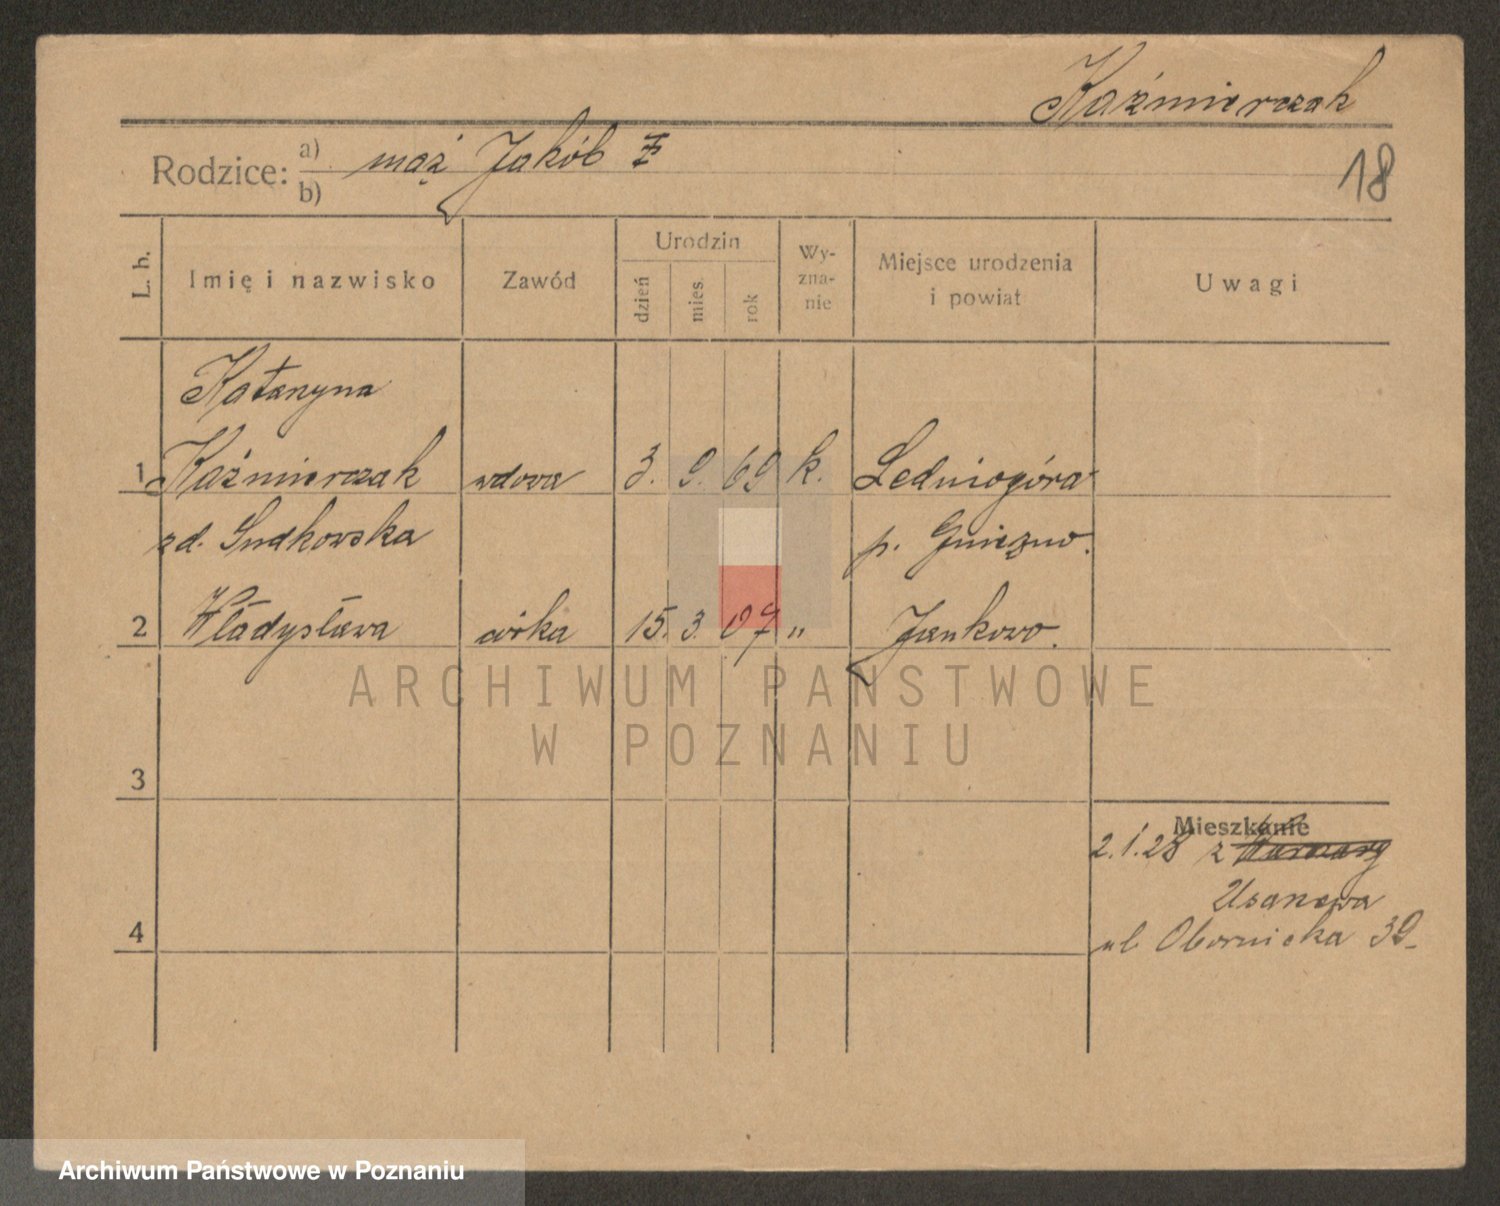 Kaźmierczak
Rodzice: a) mąż Jakób
b)
18
L. h.
Imię i nazwisko
Zawód
Urodzin
dzień
mies.
rok
Wy-
zna-
nie
Miejsce urodzenia
i powiat
Uwagi
Katarzyna
1 Kaźmierczak wdowa 3. 9. 69 k. Lednogóra
zd. Sudkowska p. Gniezno.
2 Władysława córka 15. 3. 07 „ Jankowo.
ARCHIWUM PAŃSTWOWE
W POZNANIU
3
Mieszkanie
2.1.28 z
4
ul Obornicka 39
Archiwum Państwowe w Poznaniu